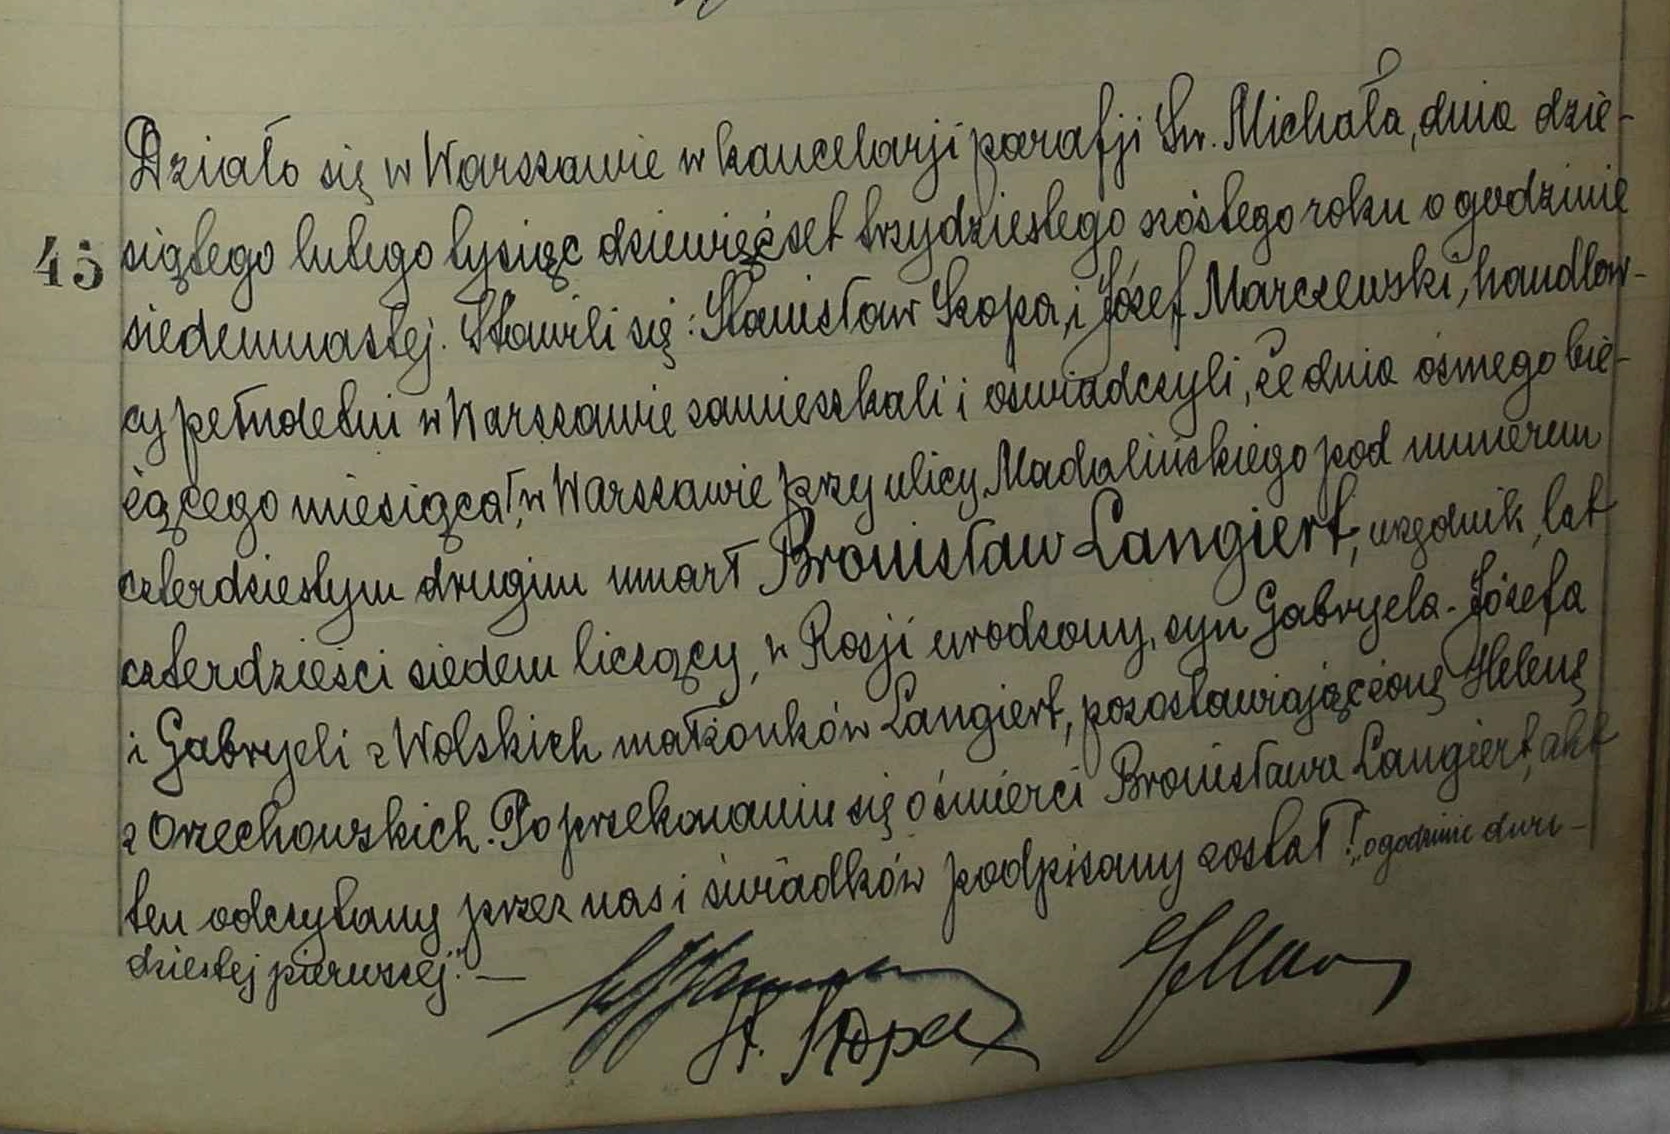 Działo się w Warszawie w kancelarji parafji Św. Michała, dnia dzie-
45 siątego lutego tysiąc dziewięćset trzydziestego szóstego roku o godzinie
siedemnastej. Stawili się: Stanisław Szopa, i Józef Marczewski, handlow-
cy pełnoletni w Warszawie zamieszkali i oświadczyli, że dnia ósmego bie-
żącego miesiąca!, w Warszawie przy ulicy Madalińskiego pod numerem
czterdziestym drugim umarł Bronisław Langiert, urzędnik, lat
czterdzieści siedem liczący, w Rosji urodzony, syn Gabryela-Józefa
i Gabryeli z Wolskich małżonków Langiert, pozostawiając żonę Helenę
z Orzechowskich. Po przekonaniu się o śmierci Bronisława Langiert, akt
ten odczytany przez nas i świadków podpisany został! "o godzinie dwu-
dziestej pierwszej". —
St. Szopa